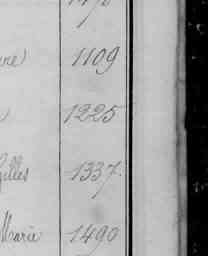 1109
1225
Gilles 1337.
Marie 1490